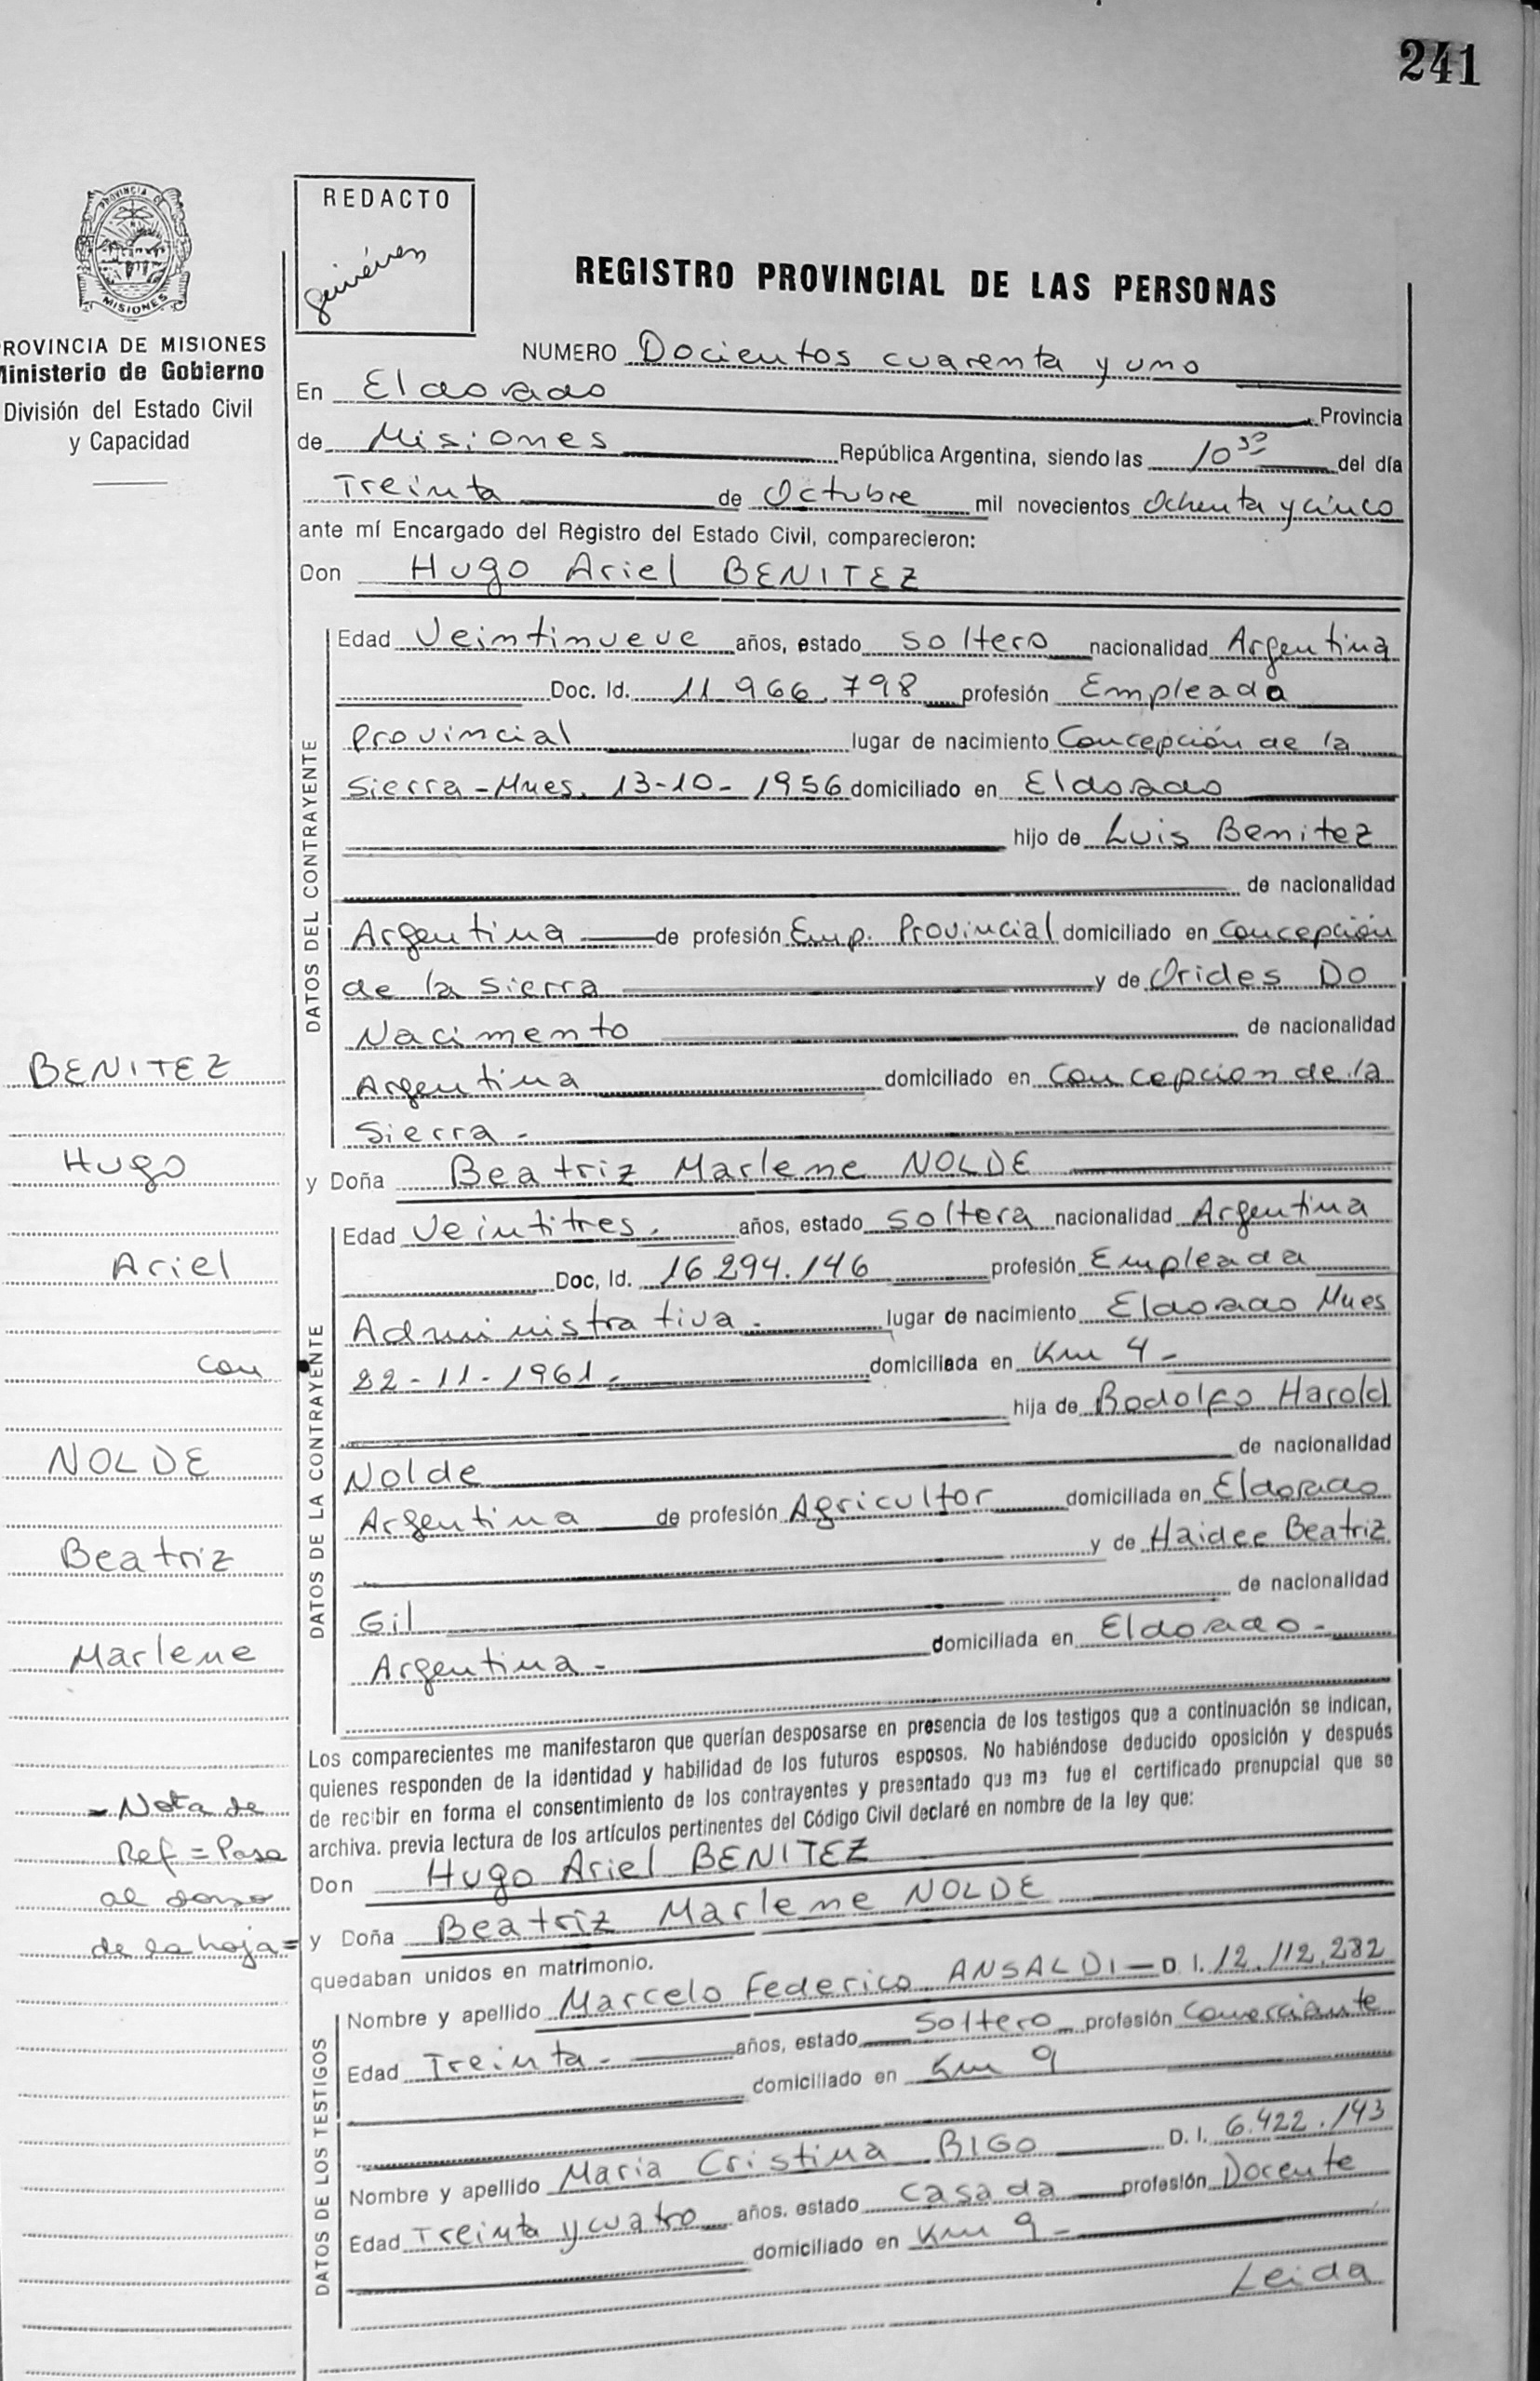 241
PROVINCIA DE
MISIONES
ROVINCIA DE MISIONES
Ministerio de Gobierno
División del Estado Civil
y Capacidad
REDACTO
Giménez
REGISTRO PROVINCIAL DE LAS PERSONAS
NUMERO Docientos cuarenta y uno
En Eldorado Provincia
de Misiones República Argentina, siendo las 10 30 del día
Treinta de Octubre mil novecientos Ochenta y cinco
ante mí Encargado del Registro del Estado Civil, comparecieron:
Don Hugo Ariel BENITEZ
DATOS DEL CONTRAYENTE
Edad Veintinueve años, estado soltero nacionalidad Argentina
Doc. Id. 11.966.798 profesión Empleado
Provincial lugar de nacimiento Concepción de la
Sierra - Mnes. 13-10-1956 domiciliado en Eldorado
hijo de Luis Benitez
de nacionalidad
Argentina de profesión Emp. Provincial domiciliado en Concepción
de la Sierra y de Orides Do
Nacimento de nacionalidad
Argentina domiciliado en Concepcion de la
Sierra -
y Doña Beatriz Marlene NOLDE
DATOS DE LA CONTRAYENTE
Edad Veintitres. años, estado soltera nacionalidad Argentina
Doc, Id. 16.294.146 profesión Empleada
Administrativa - lugar de nacimiento Eldorado Mnes
22-11-1961 - domiciliada en Km 4 -
hija de Rodolfo Harold
Nolde de nacionalidad
Argentina de profesión Agricultor domiciliada en Eldorado
y de Haidee Beatriz
Gil de nacionalidad
Argentina - domiciliada en Eldorado -
Los comparecientes me manifestaron que querían desposarse en presencia de los testigos que a continuación se indican,
quienes responden de la identidad y habilidad de los futuros esposos. No habiéndose deducido oposición y después
de recibir en forma el consentimiento de los contrayentes y presentado que me fue el certificado prenupcial que se
archiva. previa lectura de los artículos pertinentes del Código Civil declaré en nombre de la ley que:
Don Hugo Ariel BENITEZ
y Doña Beatriz Marlene NOLDE
quedaban unidos en matrimonio.
DATOS DE LOS TESTIGOS
Nombre y apellido Marcelo Federico ANSALDI - D. I. 12.112.282
Edad Treinta - años, estado Soltero profesión Comerciante
domiciliado en Km 9
Nombre y apellido Maria Cristina BIGO D. I. 6.422.143
Edad Treinta y cuatro años. estado casada profesión Docente
domiciliado en Km 9 -
Leida
BENITEZ
Hugo
Ariel
con
NOLDE
Beatriz
Marlene
- Nota de
Ref = Pasa
al dorso
de la hoja =